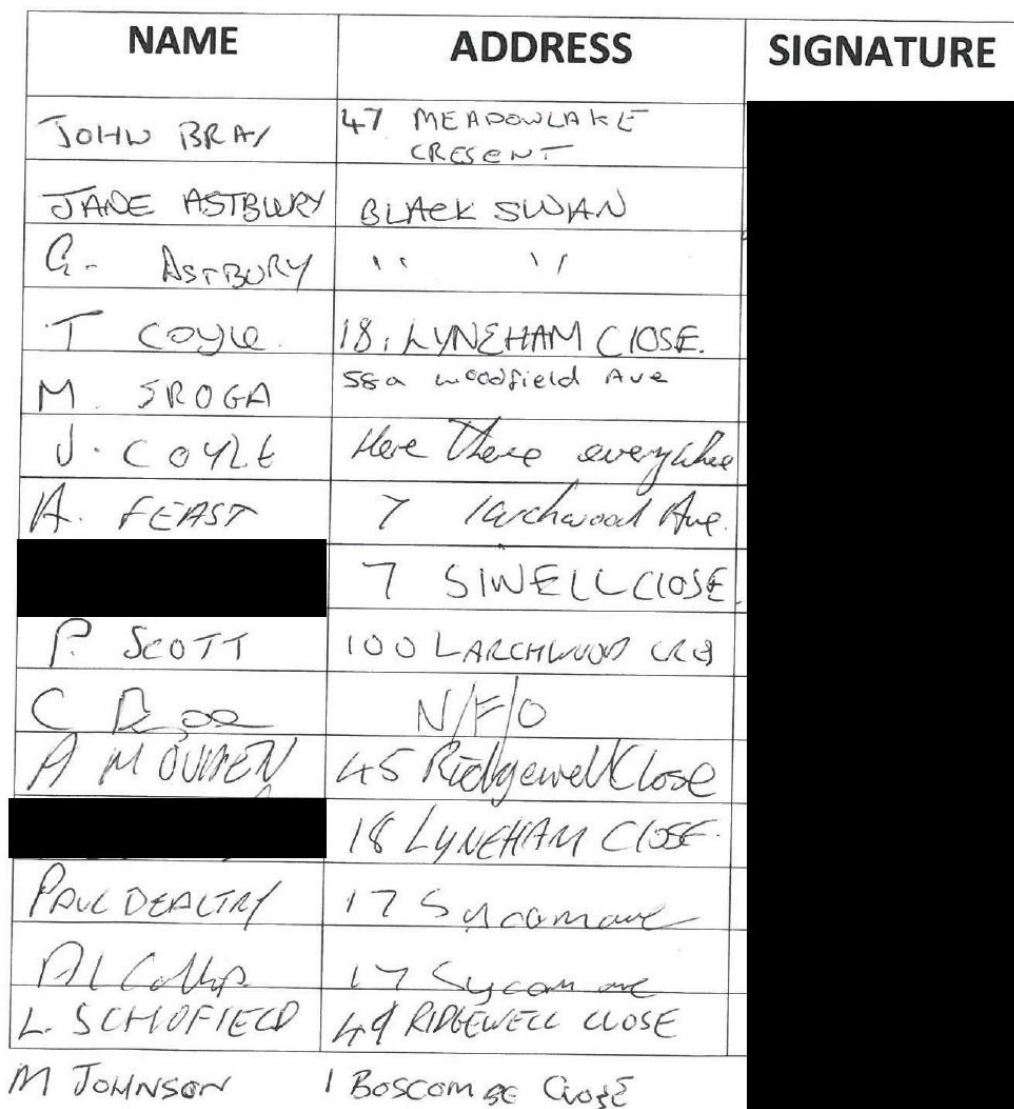 NAME ADDRESS SIGNATURE
JOHN BRAY 47 MEADOWLAKE
CRESENT
JANE ASTBURY BLACK SWAN
G. ASTBURY " "
T COYLE. 18, LYNEHAM CLOSE.
M. SROGA 58a woodfield Ave
J. COYLE Here There everywhere
A. FEAST 7 larchwood Ave.
7 SIWELL CLOSE.
P. SCOTT 100 LARCHWOOD
C N/F/O
A M 45 Ridgewell Close
18 LYNEHAM CLOSE.
PAUL DEALTRY 17
17
L. SCHOFIELD 49 RIDGEWELL CLOSE
M JOHNSON 1 BOSCOMBE CLOSE